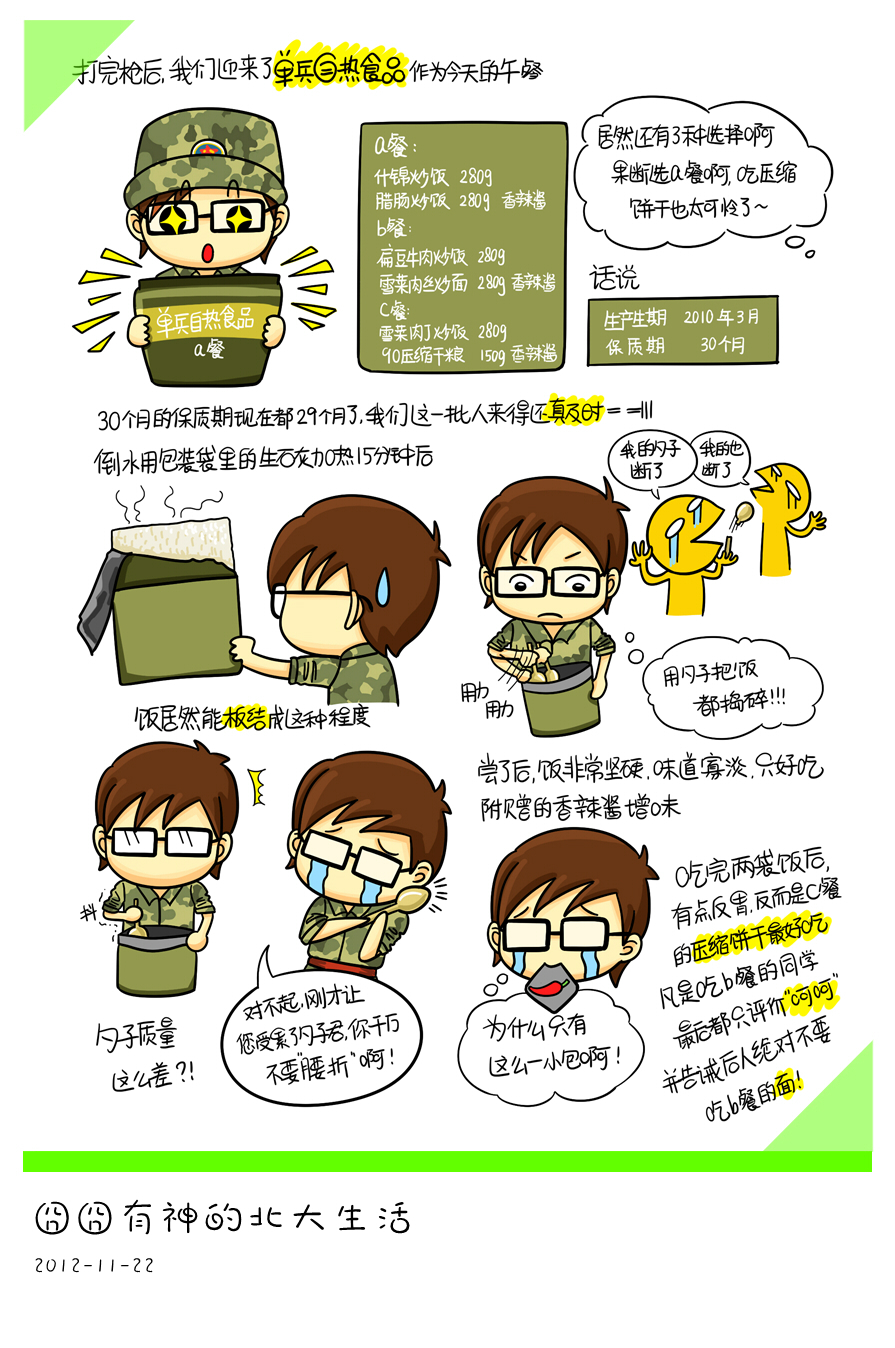 打完枪后,我们迎来了单兵自热食品作为今天的午餐
单兵自热食品
a餐
a餐:
什锦炒饭 280g
腊肠炒饭 280g 香辣酱
b餐:
扁豆牛肉炒饭 280g
雪菜肉丝炒面 280g 香辣酱
C餐:
雪菜肉丁炒饭 280g
90压缩干粮 150g 香辣酱
居然还有3种选择啊
果断选a餐啊,吃压缩
饼干也太可怜了~
话说
生产生期 2010年3月
保质期 30个月
30个月的保质期现在都29个月了,我们这一批人来得还真及时＝＝|||
倒水用包装袋里的生石灰加热15分钟后
我的勺子
断了
我的也
断了
用力
用力
用勺子把饭
都捣碎!!!
饭居然能板结成这种程度
尝了后,饭非常坚硬,味道寡淡,只好吃
附赠的香辣酱增味
抖
勺子质量
这么差?!
对不起,刚才让
您受累了勺子君,你千万
不要"腰折"啊!
为什么只有
这么一小包啊!
吃完两袋饭后,
有点反胃,反而是C餐
的压缩饼干最好吃
凡是吃b餐的同学
最后都只评价"呵呵"
并告诫后人绝对不要
吃b餐的面!
囧囧有神的北大生活
2012-11-22